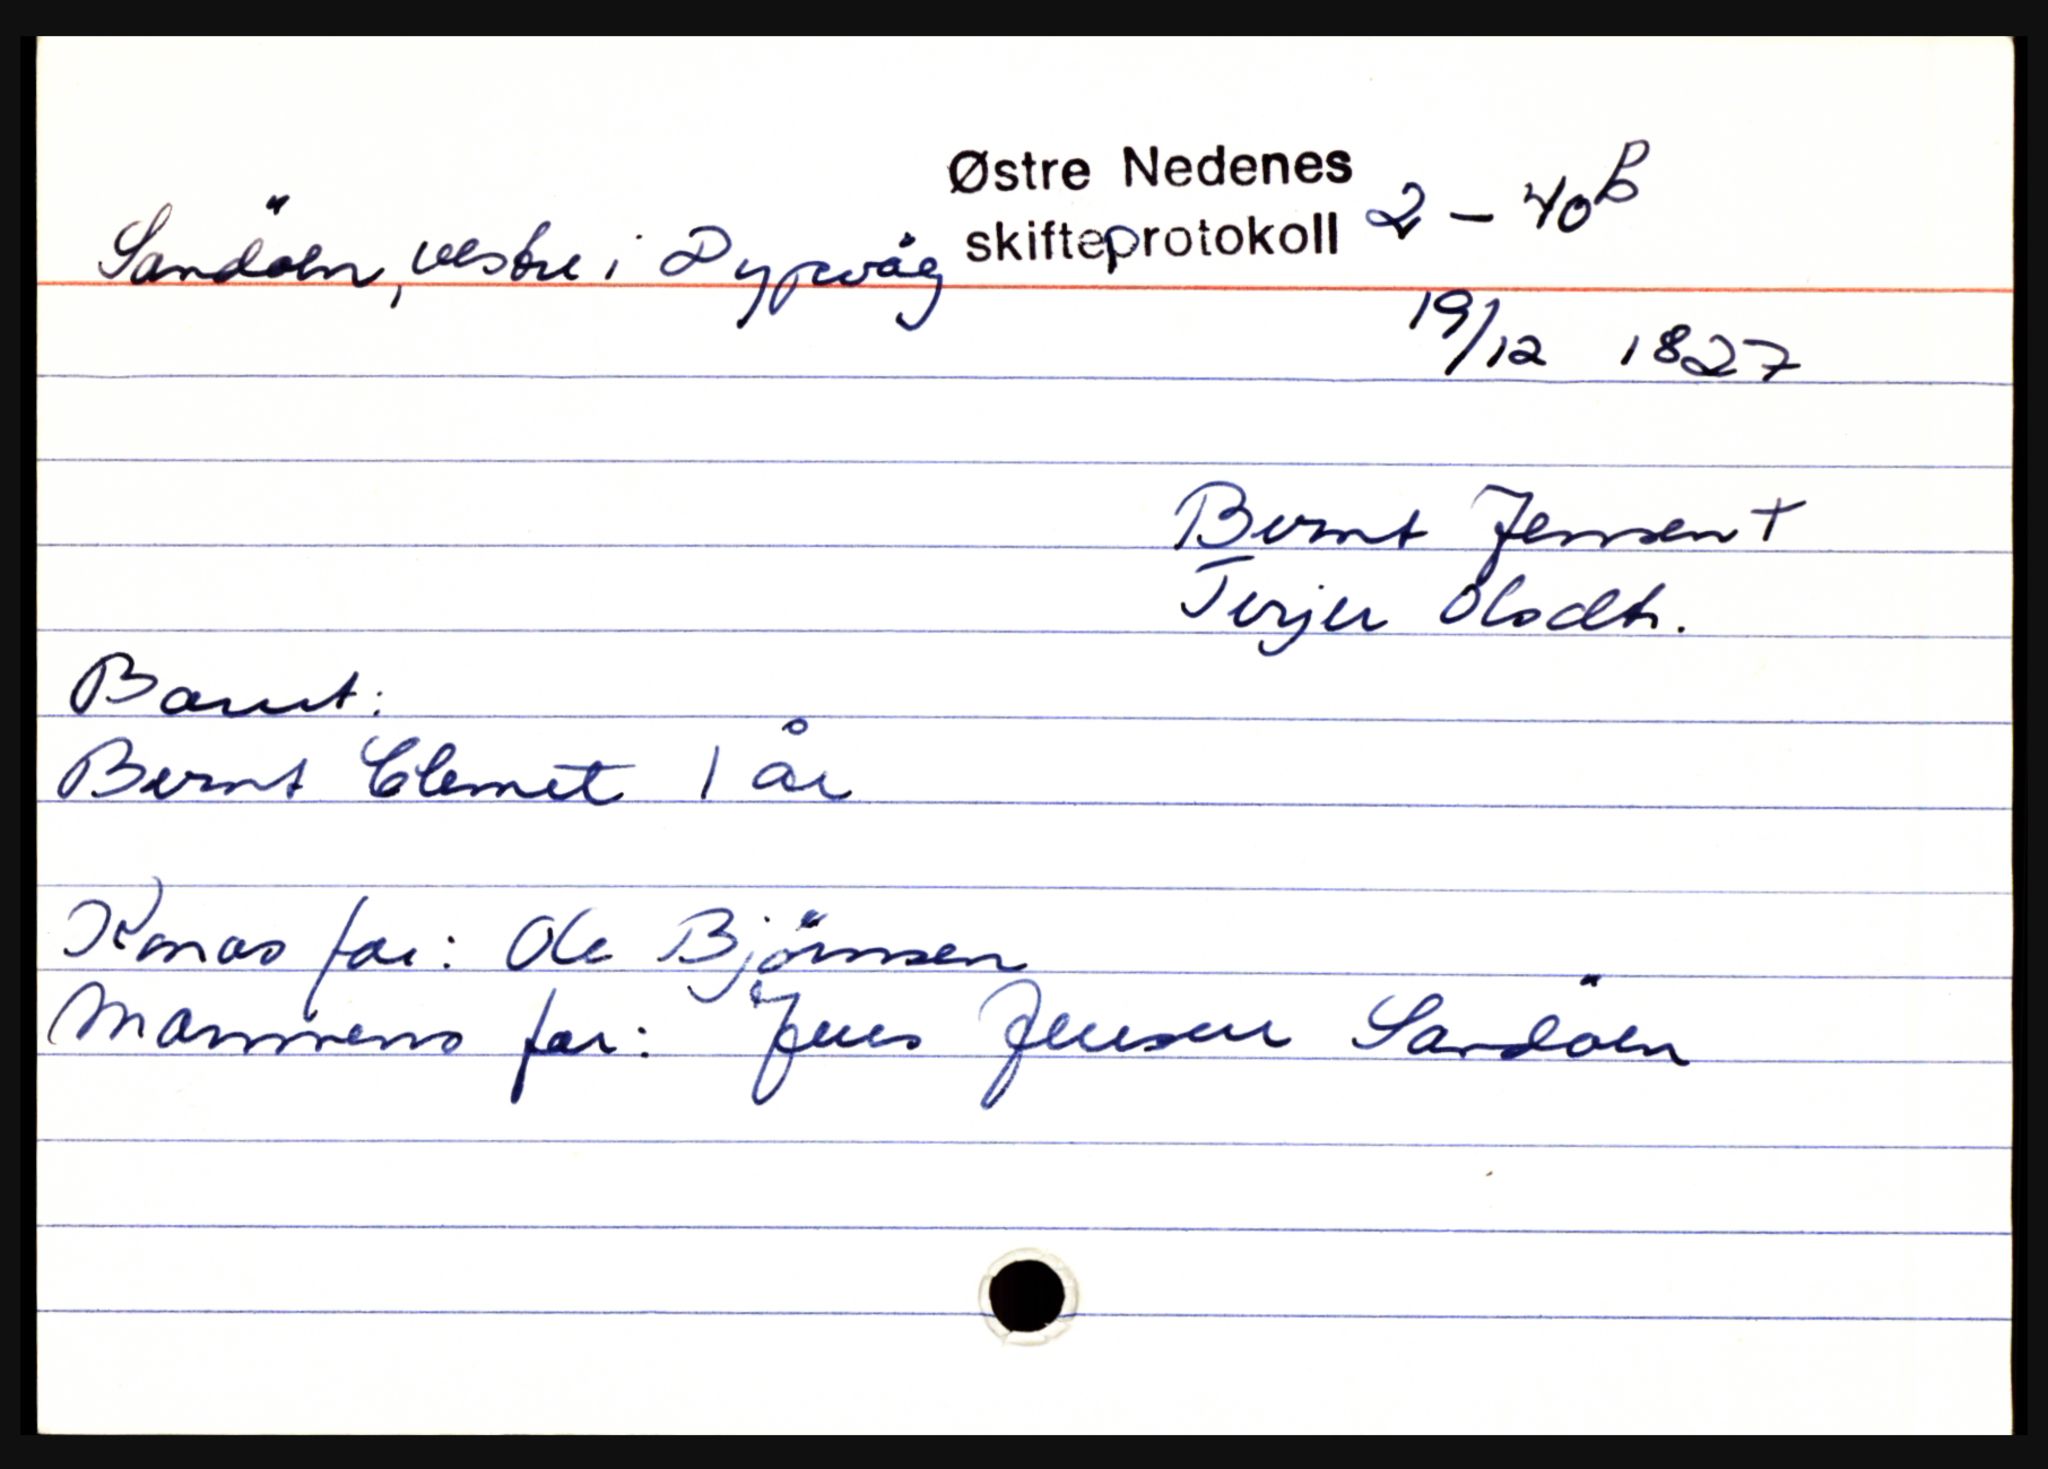 Østre Nedenes
skifteprotokoll 2 - 40b
Sandöen, vestre i Dypvåg
19/12 1827
Bernt Jensen +
Terjer Olsdtr.
Barnet:
Bernt Clemet 1 år
Konas far: Ole Björnsen
Mannens far: Jens Jensen Sandöen